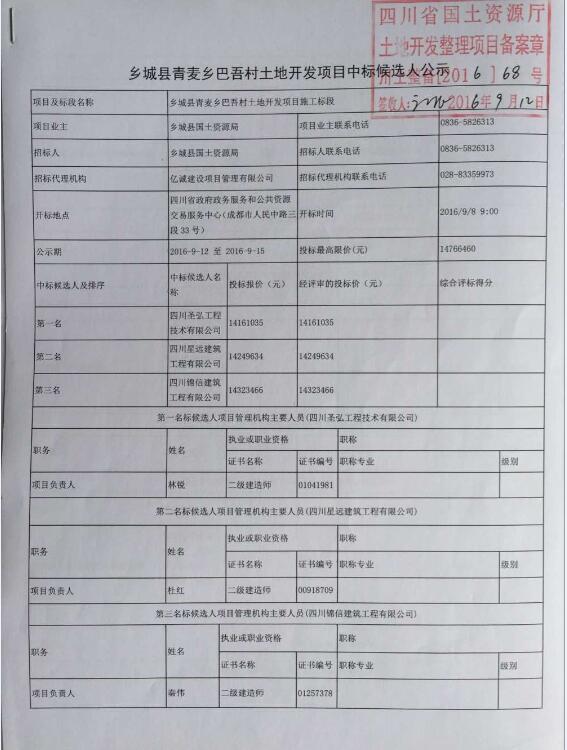 四川省国土资源厅
土地开发整理项目备案章
川土整备[2016]68号
签收人: 2016年9月12日
乡城县青麦乡巴吾村土地开发项目中标候选人公示
项目及标段名称 乡城县青麦乡巴吾村土地开发项目施工标段
项目业主 乡城县国土资源局 项目业主联系电话 0836-5826313
招标人 乡城县国土资源局 招标人联系电话 0836-5826313
招标代理机构 亿诚建设项目管理有限公司 招标代理机构联系电话 028-83359973
开标地点 四川省政府政务服务和公共资源
交易服务中心（成都市人民中路三
段33号） 开标时间 2016/9/8 9:00
公示期 2016-9-12 至 2016-9-15 投标最高限价(元) 14766460
中标候选人及排序 中标候选人名
称 投标报价（元） 经评审的投标价（元） 综合评标得分
第一名 四川圣弘工程
技术有限公司 14161035 14161035
第二名 四川星远建筑
工程有限公司 14249634 14249634
第三名 四川锦信建筑
工程有限公司 14323466 14323466
第一名标候选人项目管理机构主要人员(四川圣弘工程技术有限公司)
职务 姓名 执业或职业资格 职称
证书名称 证书编号 职称专业 级别
项目负责人 林锐 二级建造师 01041981
第二名标候选人项目管理机构主要人员(四川星远建筑工程有限公司)
职务 姓名 执业或职业资格 职称
证书名称 证书编号 职称专业 级别
项目负责人 杜红 二级建造师 00918709
第三名标候选人项目管理机构主要人员(四川锦信建筑工程有限公司)
职务 姓名 执业或职业资格 职称
证书名称 证书编号 职称专业 级别
项目负责人 秦伟 二级建造师 01257378